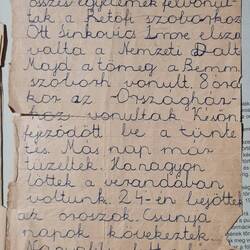 összes egyetemek felvonul-
tak a Petőfi szoborhoz
Ott Sinkovics Imre elsza
valta a Nemzeti Dalt
Majd a tömeg a Bemm
szoborh vonult. 8 óra
kor az Országház-
hoz vonultak Késön
fejződött be a tünte
tés. Más nap már
tüzeltek. Ha nagyon
lőttek a verandában
voltunk. 24-én bejöttek
az oroszok. Csunya
napok következtek